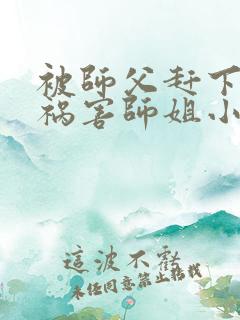 被師父赶下
祸害師姐小
這波不虧
未经同意禁止转载